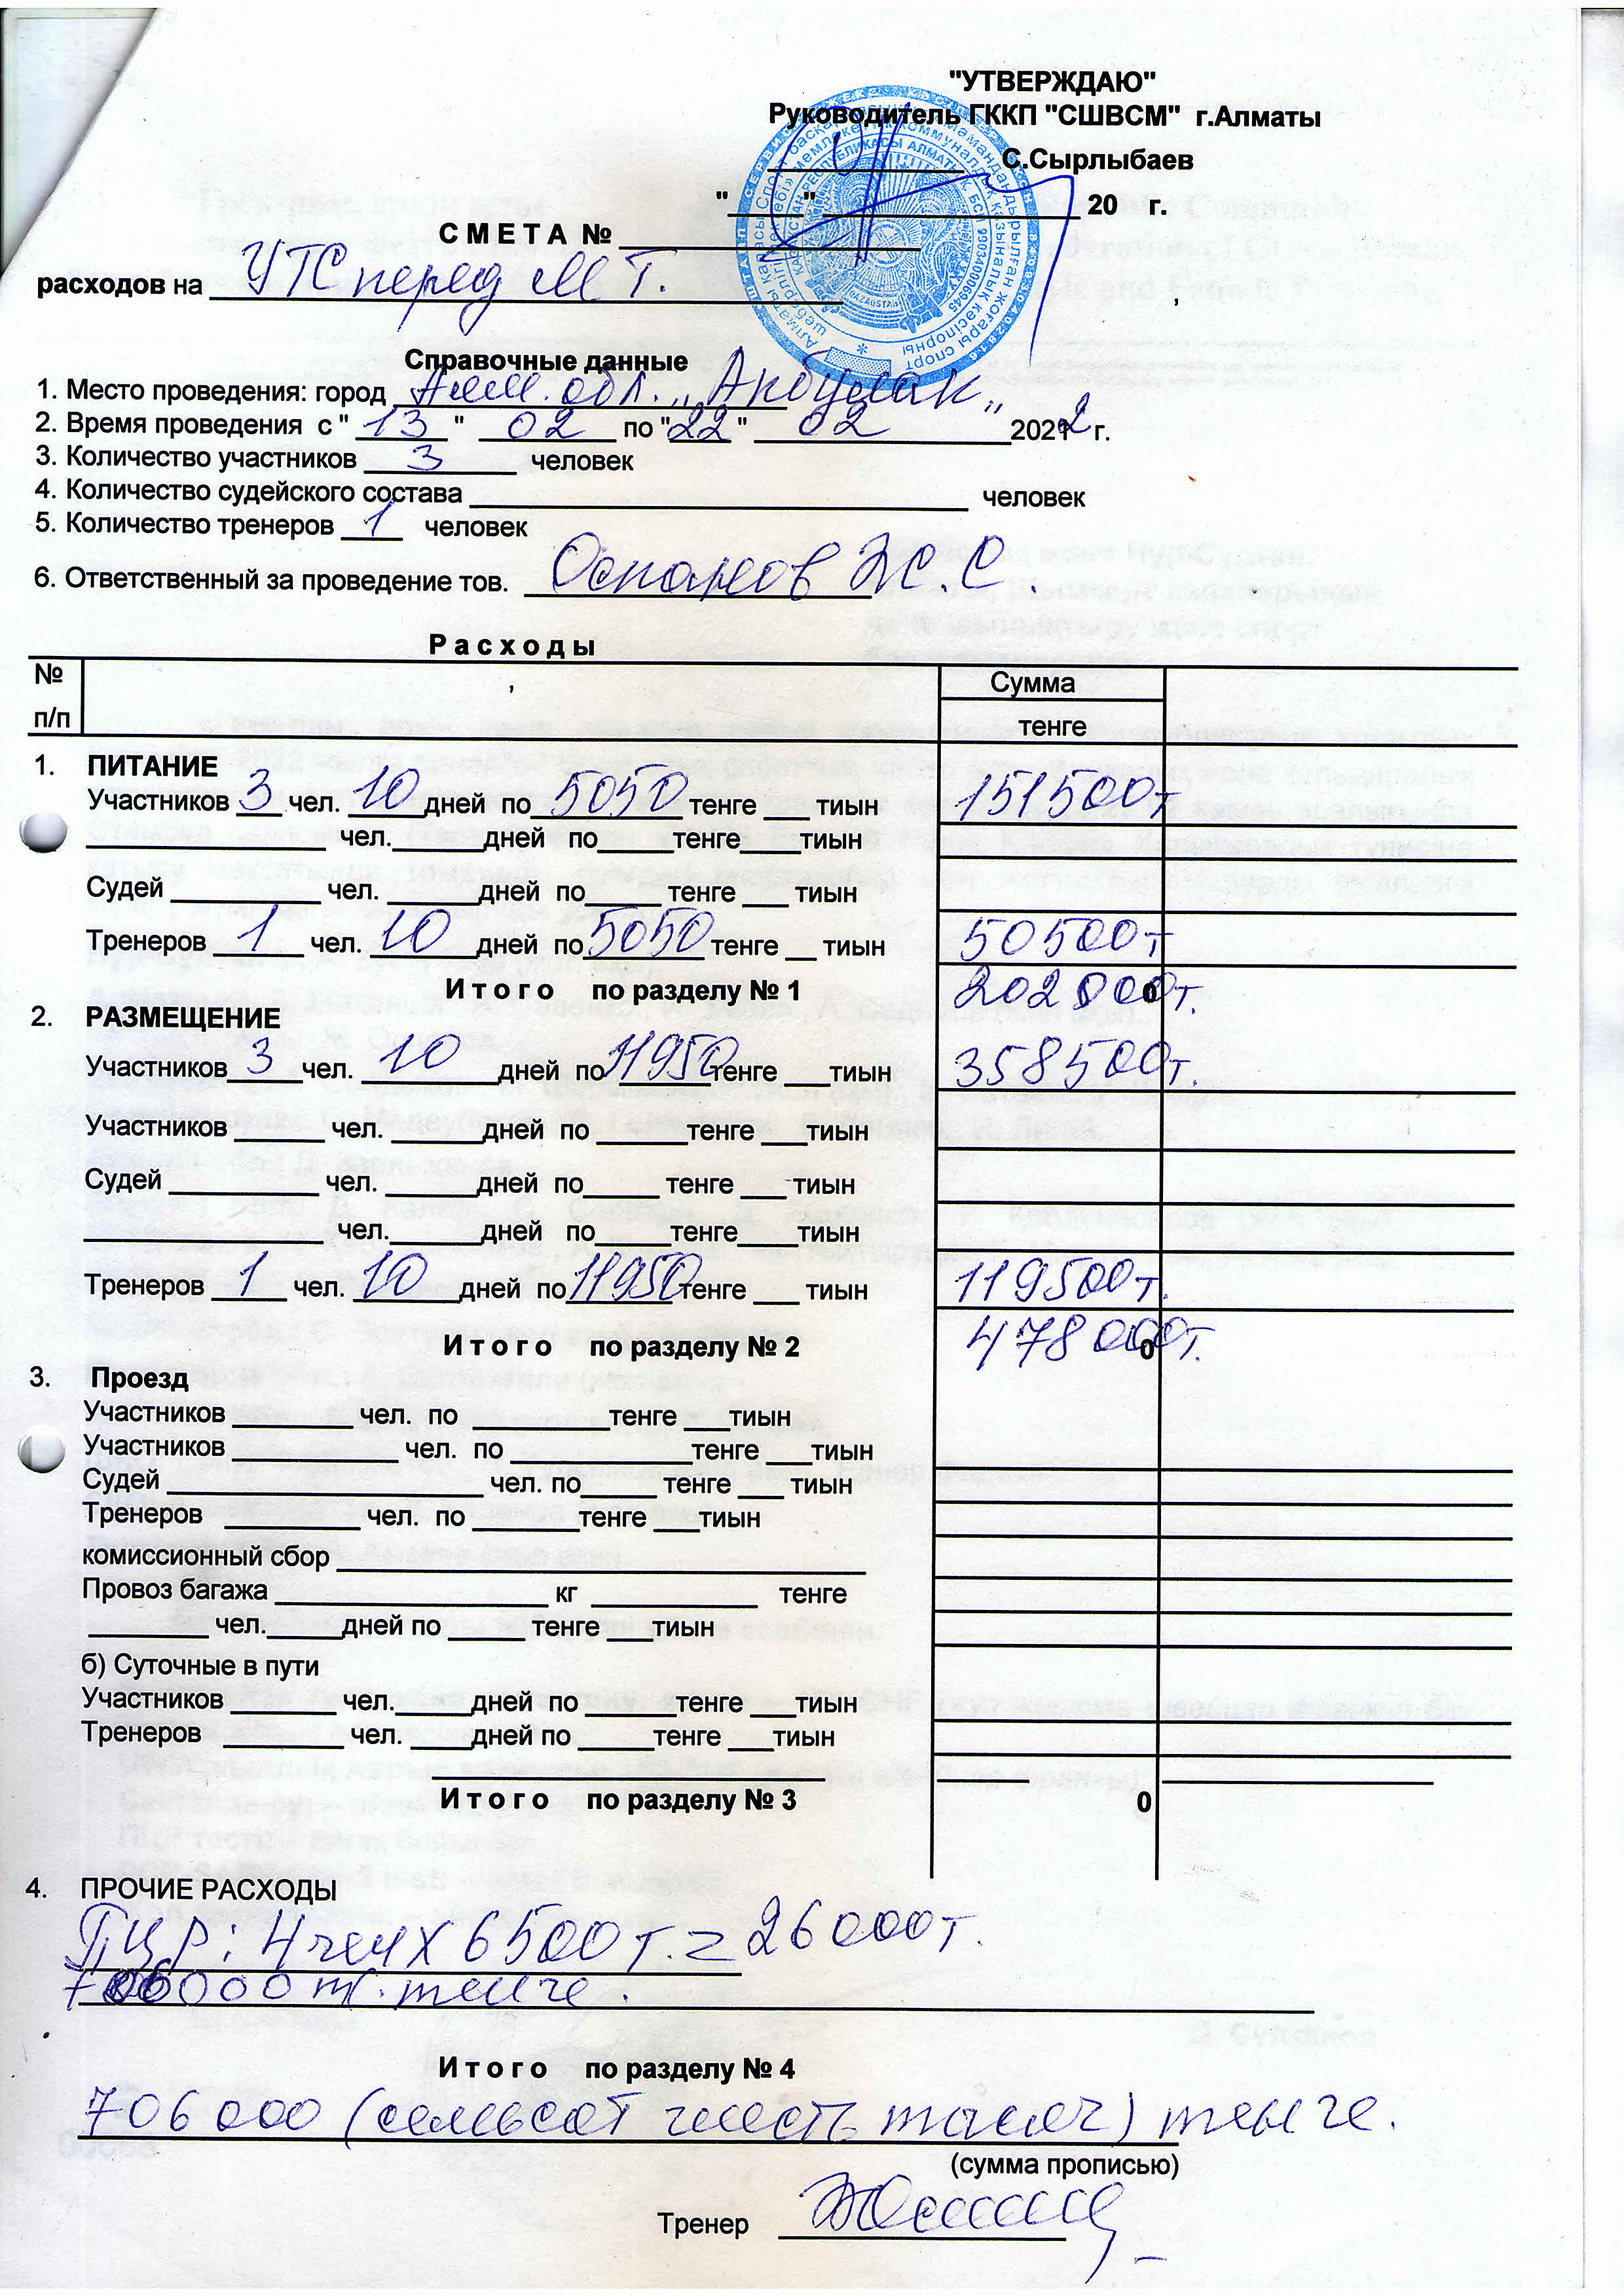 "УТВЕРЖДАЮ"
Руководитель ГККП "СШВСМ" г.Алматы
С.Сырлыбаев
"____" ____________ 20 г.
С М Е Т А № ____________
расходов на УТС перед М Т.
Справочные данные
1. Место проведения: город Алм. обл. „Акбулак„
2. Время проведения с " 13 " 02 по " 22 " 02 2022 г.
3. Количество участников 3 человек
4. Количество судейского состава ____________ человек
5. Количество тренеров 1 человек
6. Ответственный за проведение тов. Оспанов Ж.С.
Р а с х о д ы
№ п/п Сумма
тенге
1. ПИТАНИЕ
Участников 3 чел. 10 дней по 5050 тенге ___ тиын 151500т
____________ чел.______дней по_____тенге____тиын
Судей ________ чел. ______дней по_____ тенге ___ тиын
Тренеров 1 чел. 10 дней по 5050 тенге __ тиын 50500т
И т о г о по разделу № 1 202000т.
2. РАЗМЕЩЕНИЕ
Участников 3 чел. 10 дней по 11950 тенге ___тиын 358500т.
Участников ______ чел. ______дней по ______тенге ___тиын
Судей __________ чел. ______дней по_____ тенге ___ тиын
____________ чел.______дней по_____тенге____тиын
Тренеров 1 чел. 10 дней по 11950 тенге ___ тиын 119500т.
И т о г о по разделу № 2 478000т.
3. Проезд
Участников ________ чел. по _________тенге ___тиын
Участников ___________ чел. по ____________тенге ___тиын
Судей ____________ чел. по_____ тенге ___ тиын
Тренеров _________ чел. по _______тенге ___тиын
комиссионный сбор ____________
Провоз багажа ____________ кг ___________ тенге
________ чел._____дней по _____ тенге ___тиын
б) Суточные в пути
Участников _______ чел._____дней по ______тенге ___тиын
Тренеров ________ чел. ____дней по _____тенге ___тиын
И т о г о по разделу № 3 0
4. ПРОЧИЕ РАСХОДЫ
ПЦР: 4 чел х 6500 т. = 26000т.
706000 т. тенге.
И т о г о по разделу № 4
706 000 (семьсот шесть тысяч) тенге.
(сумма прописью)
Тренер